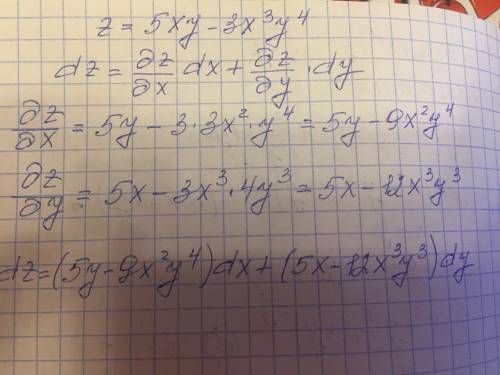 z = 5xy - 3x³y⁴
dz = ∂z/∂x dx + ∂z/∂y · dy
∂z/∂x = 5y - 3·3x²·y⁴ = 5y - 9x²y⁴
∂z/∂y = 5x - 3x³·4y³ = 5x - 12x³y³
dz = (5y - 9x²y⁴)dx + (5x - 12x³y³)dy